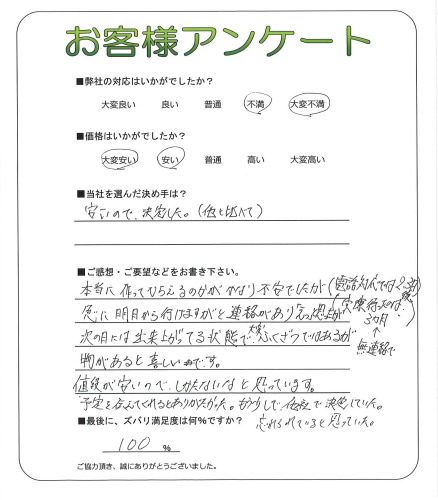 お客様アンケート
■弊社の対応はいかがでしたか？
大変良い 良い 普通 不満 大変不満
■価格はいかがでしたか？
大変安い 安い 普通 高い 大変高い
■当社を選んだ決め手は？
安いので、決定した。（他と比べて）
■ご感想・ご要望などをお書き下さい。
本当に作ってもらえるのかがかなり不安でしたが（電話対応では2~3
急に明日から行けますがと連絡があり（実際待たのは
3ヵ月
次の日には出来上がってる状態で ふくざつではあるが
無連絡で
物があると喜しいのです。
値段が安いのでしかたないなと思っています。
予定を言ってくれるとありがたかった。もう少しで他社で決定していた。
■最後に、ズバリ満足度は何％ですか？ 忘れられていると思っていた。
100 %
ご協力頂き、誠にありがとうございました。